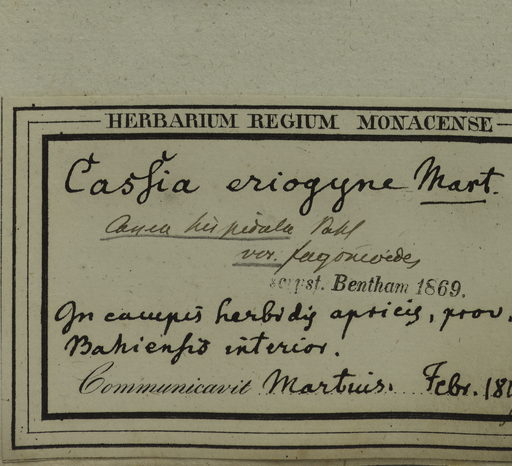 HERBARIUM REGIUM MONACENSE
Cassia eriogyne Mart.
Cassia hispidula Vahl
var. fagonioides
scripst. Bentham 1869.
In campis herbidis apricis, prov.
Bahiensis interior.
Communicavit Martius. Febr. 18